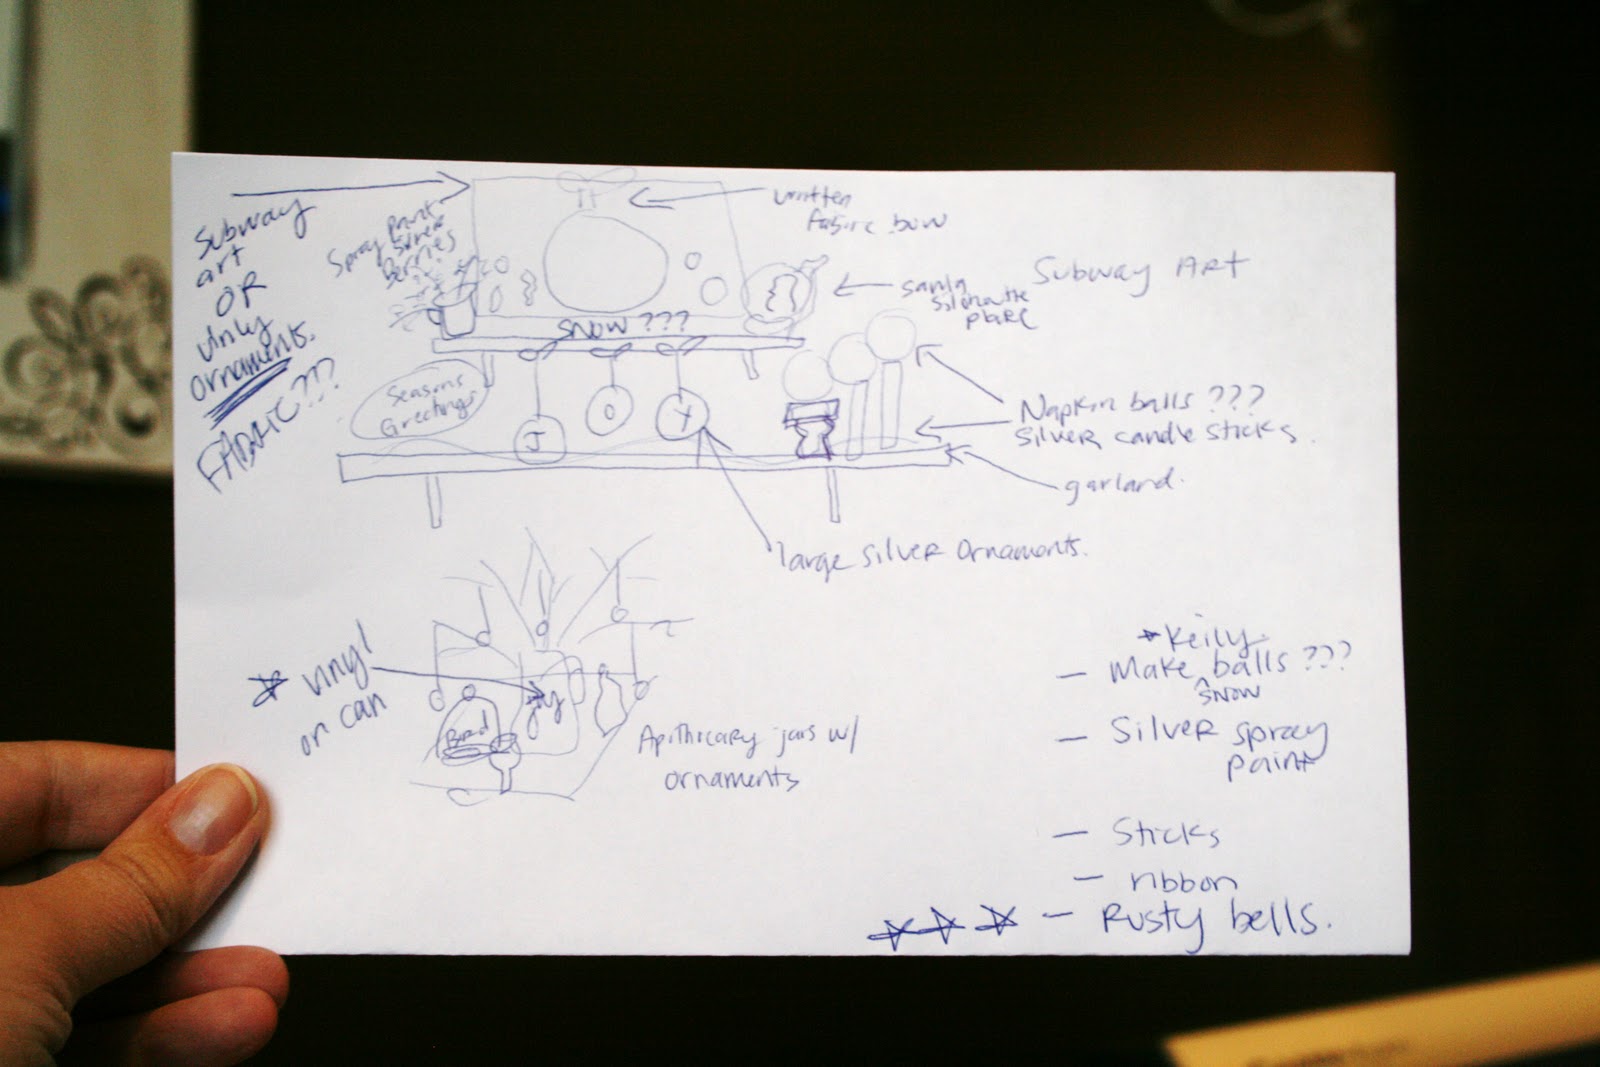 Subway
art
OR
Vinly
ornaments.
FABRIC???
Spray paint
Silver
Berries
written
fabric bow
Santa
Silohatte
plate
Subway Art
SNOW ???
Seasons
Greetings
J
O
Y
Napkin balls ???
Silver candle sticks.
garland.
large Silver ornaments.
vinyl
on can
Joy
Bird
Apithicary jars w/
ornaments
Keily
- Make balls ???
snow
- Silver spray
paint
- Sticks
- ribbon
- Rusty bells.